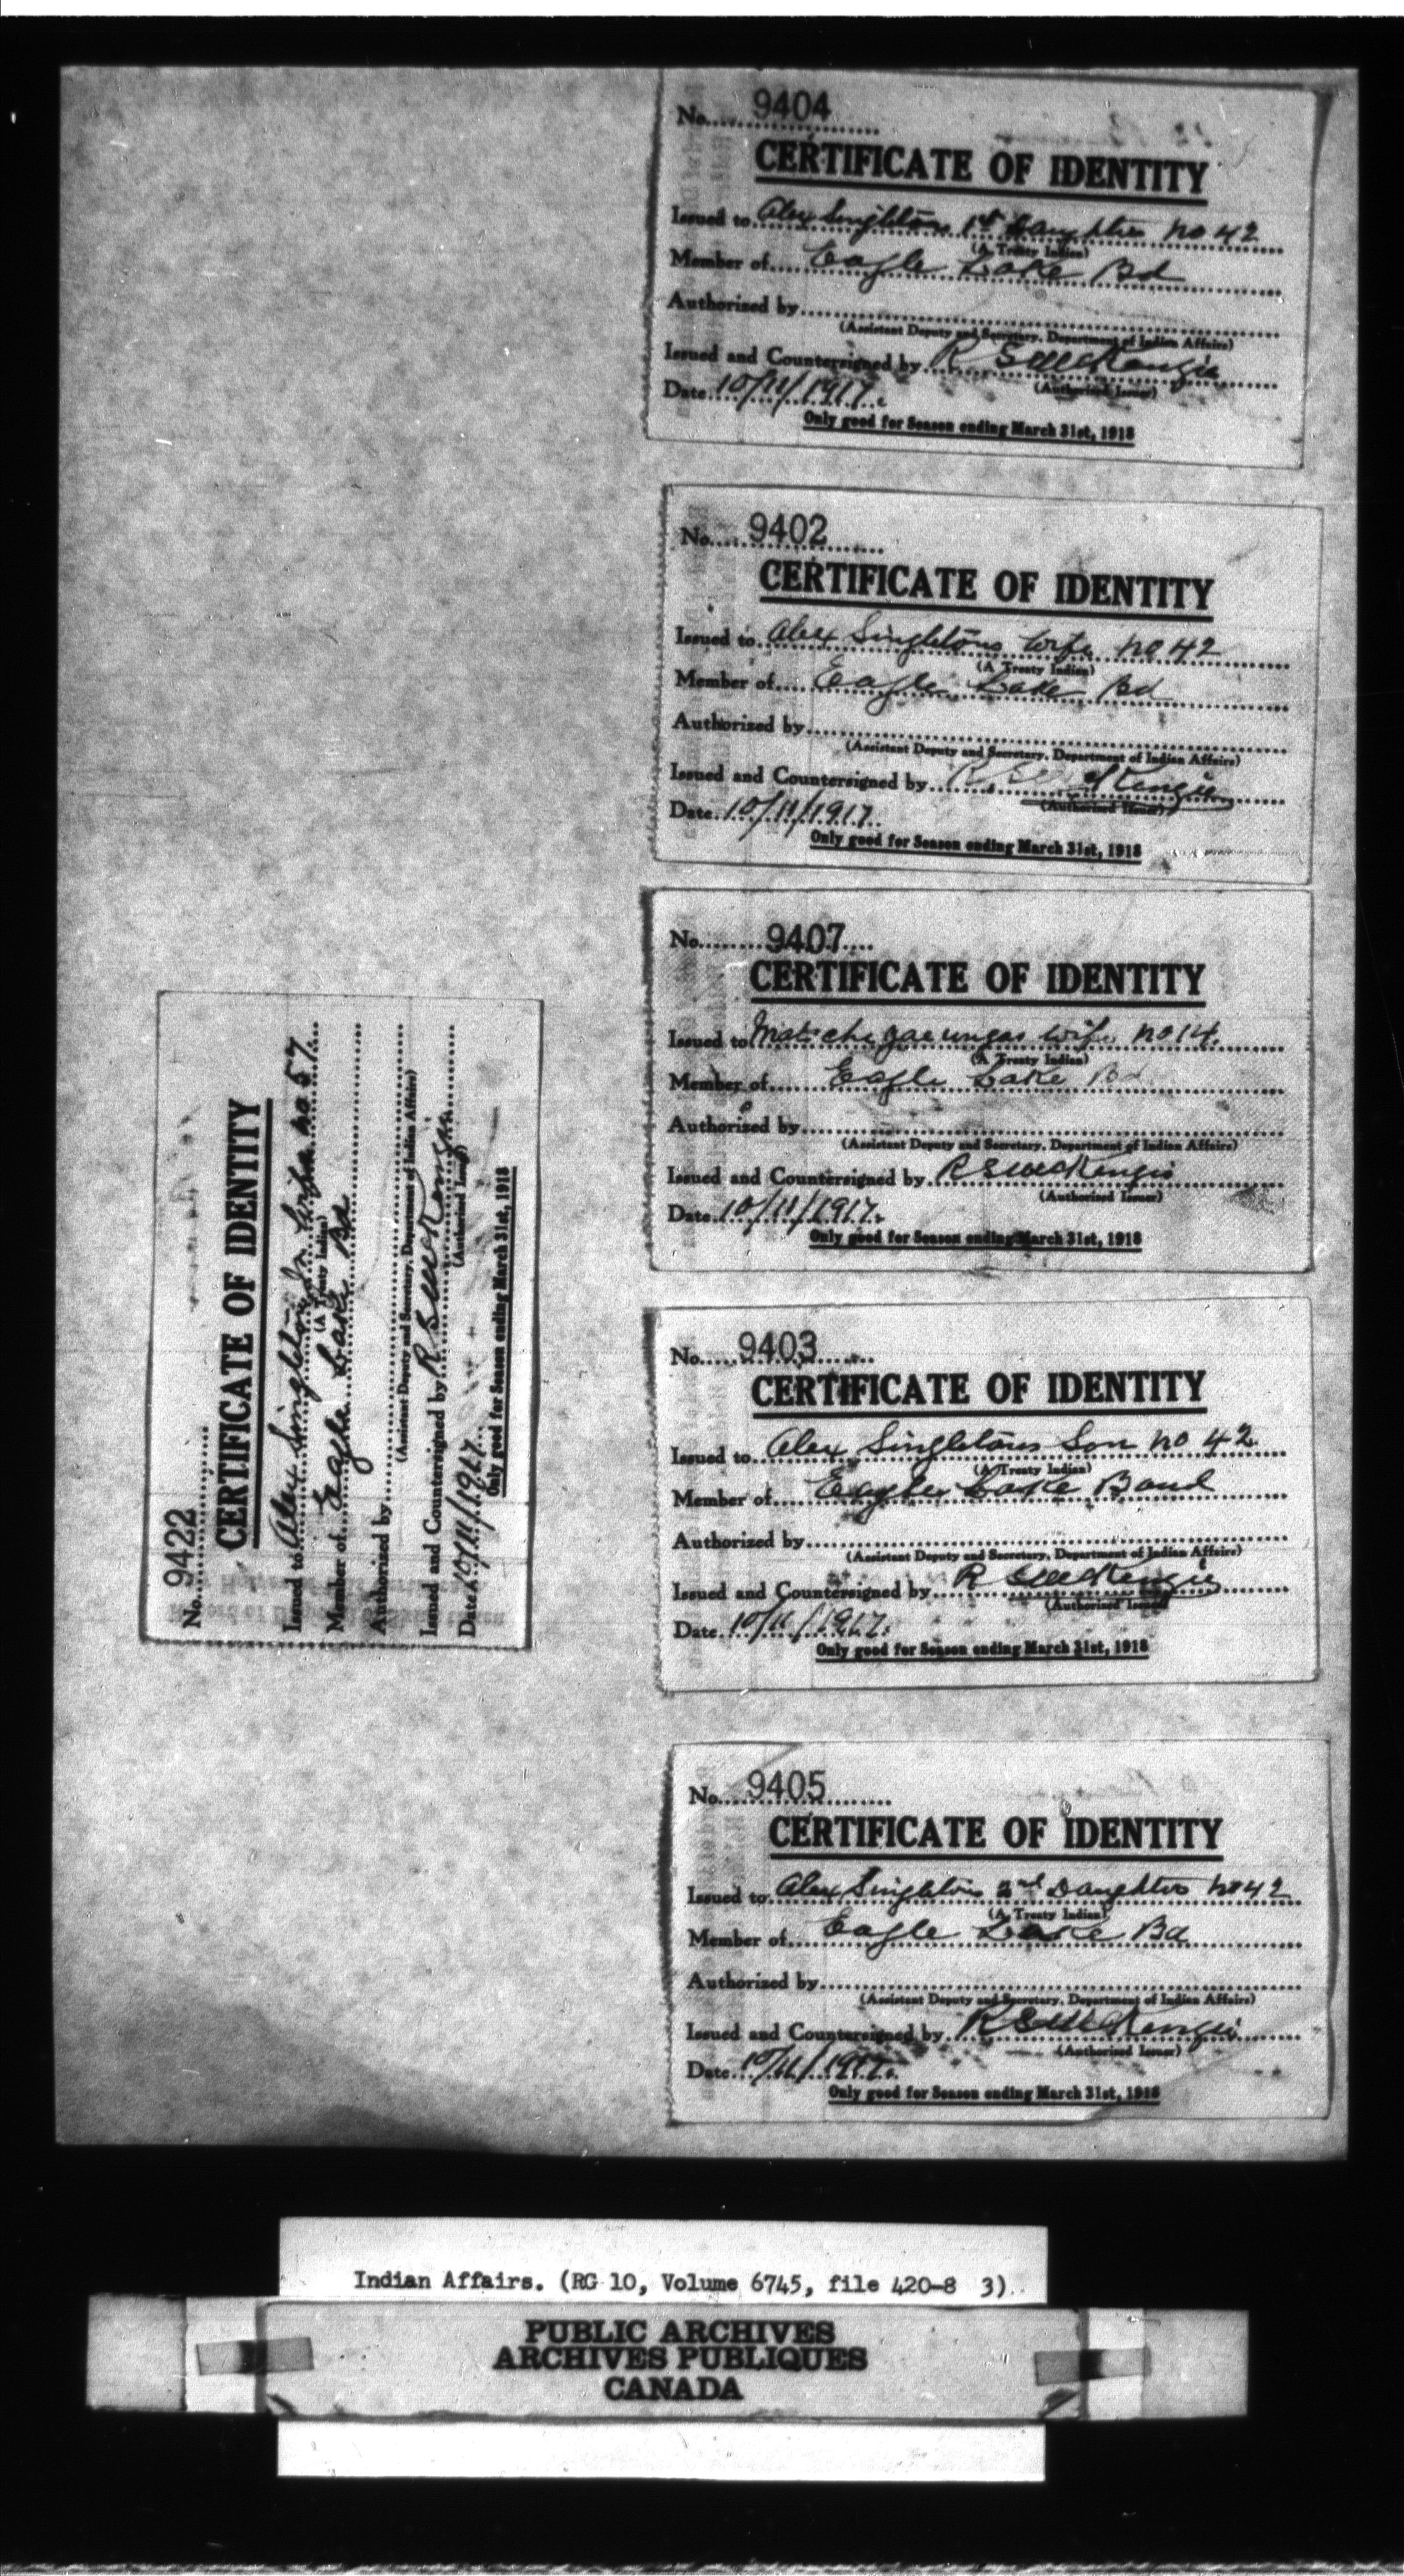 No. 9404
CERTIFICATE OF IDENTITY
Issued to Alex Singletons 1st Daughter no 42
(A Treaty Indian)
Member of Eagle Lake Bd
Authorized by
(Assistant Deputy and Secretary, Department of Indian Affairs)
Issued and Countersigned by R S McKenzie
(Authorized Issuer)
Date 10/11/1917.
Only good for Season ending March 31st, 1918
No. 9402
CERTIFICATE OF IDENTITY
Issued to Alex Singletons wife no 42
(A Treaty Indian)
Member of Eagle Lake Bd
Authorized by
(Assistant Deputy and Secretary, Department of Indian Affairs)
Issued and Countersigned by R S McKenzie
(Authorized Issuer)
Date 10/11/1917.
Only good for Season ending March 31st, 1918
No. 9407
CERTIFICATE OF IDENTITY
Issued to wife no 14.
(A Treaty Indian)
Member of Eagle Lake Bd
Authorized by
(Assistant Deputy and Secretary, Department of Indian Affairs)
Issued and Countersigned by R S McKenzie
(Authorized Issuer)
Date 10/11/1917.
Only good for Season ending March 31st, 1918
No. 9422
CERTIFICATE OF IDENTITY
Issued to Alex Singleton Jr. wife no 57.
(A Treaty Indian)
Member of Eagle Lake Bd
Authorized by
(Assistant Deputy and Secretary, Department of Indian Affairs)
Issued and Countersigned by R S McKenzie
(Authorized Issuer)
Date 10/11/1917.
Only good for Season ending March 31st, 1918
No. 9403
CERTIFICATE OF IDENTITY
Issued to Alex Singletons Son no 42
(A Treaty Indian)
Member of Eagle Lake Band
Authorized by
(Assistant Deputy and Secretary, Department of Indian Affairs)
Issued and Countersigned by R S McKenzie
(Authorized Issuer)
Date 10/11/1917.
Only good for Season ending March 31st, 1918
No. 9405
CERTIFICATE OF IDENTITY
Issued to Alex Singletons 2nd Daughter no 42
(A Treaty Indian)
Member of Eagle Lake Bd
Authorized by
(Assistant Deputy and Secretary, Department of Indian Affairs)
Issued and Countersigned by R S McKenzie
(Authorized Issuer)
Date 10/11/1917.
Only good for Season ending March 31st, 1918
Indian Affairs. (RG 10, Volume 6745, file 420-8 3)
PUBLIC ARCHIVES
ARCHIVES PUBLIQUES
CANADA